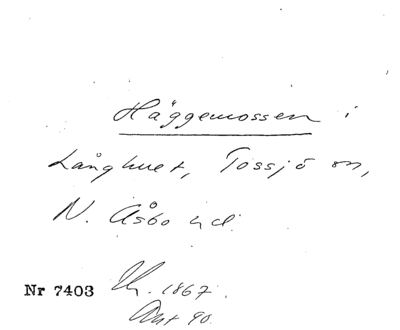 Häggemossen i
Långhuet, Tossjö sn,
N. Åsbo hd.
Nr 7403 Uh. 1867.
Ant 90.